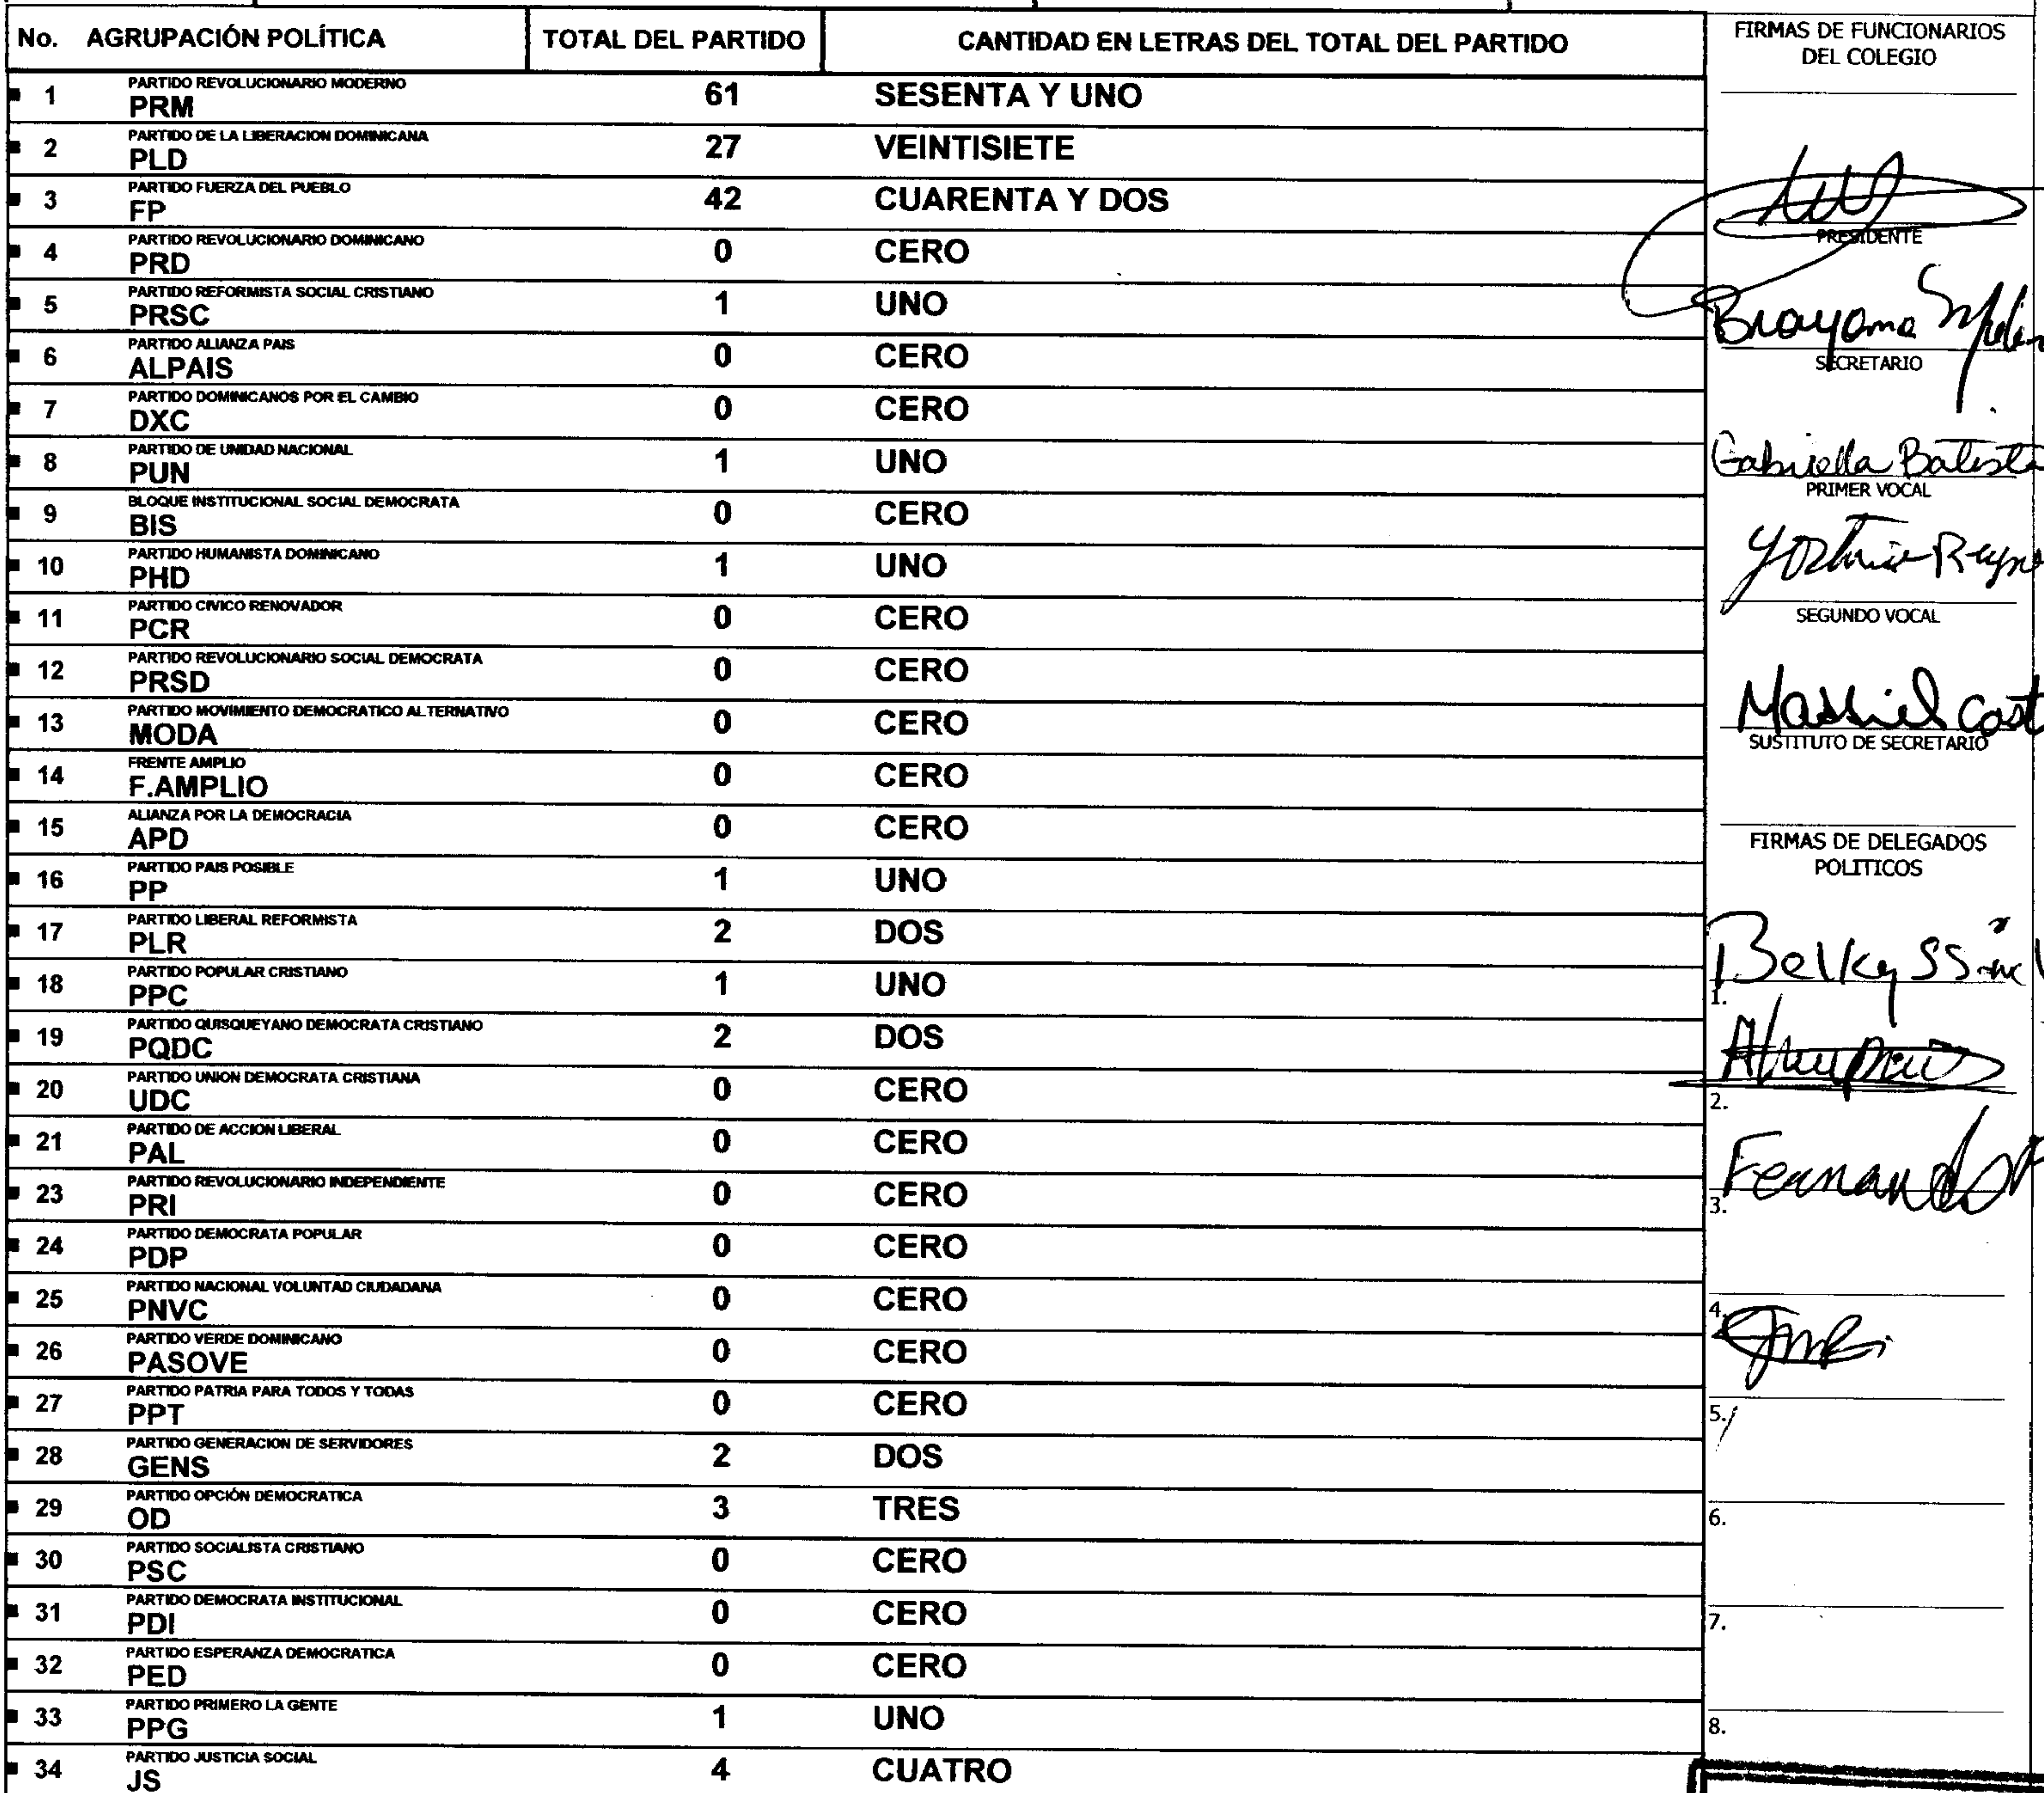 No. AGRUPACIÓN POLÍTICA TOTAL DEL PARTIDO CANTIDAD EN LETRAS DEL TOTAL DEL PARTIDO
PARTIDO REVOLUCIONARIO MODERNO
1 PRM 61 SESENTA Y UNO
PARTIDO DE LA LIBERACION DOMINICANA
2 PLD 27 VEINTISIETE
PARTIDO FUERZA DEL PUEBLO
3 FP 42 CUARENTA Y DOS
PARTIDO REVOLUCIONARIO DOMINICANO
4 PRD 0 CERO
PARTIDO REFORMISTA SOCIAL CRISTIANO
5 PRSC 1 UNO
PARTIDO ALIANZA PAIS
6 ALPAIS 0 CERO
PARTIDO DOMINICANOS POR EL CAMBIO
7 DXC 0 CERO
PARTIDO DE UNIDAD NACIONAL
8 PUN 1 UNO
BLOQUE INSTITUCIONAL SOCIAL DEMOCRATA
9 BIS 0 CERO
PARTIDO HUMANISTA DOMINICANO
10 PHD 1 UNO
PARTIDO CIVICO RENOVADOR
11 PCR 0 CERO
PARTIDO REVOLUCIONARIO SOCIAL DEMOCRATA
12 PRSD 0 CERO
PARTIDO MOVIMIENTO DEMOCRATICO ALTERNATIVO
13 MODA 0 CERO
FRENTE AMPLIO
14 F.AMPLIO 0 CERO
ALIANZA POR LA DEMOCRACIA
15 APD 0 CERO
PARTIDO PAIS POSIBLE
16 PP 1 UNO
PARTIDO LIBERAL REFORMISTA
17 PLR 2 DOS
PARTIDO POPULAR CRISTIANO
18 PPC 1 UNO
PARTIDO QUISQUEYANO DEMOCRATA CRISTIANO
19 PQDC 2 DOS
PARTIDO UNION DEMOCRATA CRISTIANA
20 UDC 0 CERO
PARTIDO DE ACCION LIBERAL
21 PAL 0 CERO
PARTIDO REVOLUCIONARIO INDEPENDIENTE
23 PRI 0 CERO
PARTIDO DEMOCRATA POPULAR
24 PDP 0 CERO
PARTIDO NACIONAL VOLUNTAD CIUDADANA
25 PNVC 0 CERO
PARTIDO VERDE DOMINICANO
26 PASOVE 0 CERO
PARTIDO PATRIA PARA TODOS Y TODAS
27 PPT 0 CERO
PARTIDO GENERACION DE SERVIDORES
28 GENS 2 DOS
PARTIDO OPCIÓN DEMOCRATICA
29 OD 3 TRES
PARTIDO SOCIALISTA CRISTIANO
30 PSC 0 CERO
PARTIDO DEMOCRATA INSTITUCIONAL
31 PDI 0 CERO
PARTIDO ESPERANZA DEMOCRATICA
32 PED 0 CERO
PARTIDO PRIMERO LA GENTE
33 PPG 1 UNO
PARTIDO JUSTICIA SOCIAL
34 JS 4 CUATRO
FIRMAS DE FUNCIONARIOS
DEL COLEGIO
PRESIDENTE
Brayoma
SECRETARIO
Gabriella Batista
PRIMER VOCAL
SEGUNDO VOCAL
Massiel Cast
SUSTITUTO DE SECRETARIO
FIRMAS DE DELEGADOS
POLITICOS
Belky
1.
2.
Fernando
3.
4.
5.
6.
7.
8.